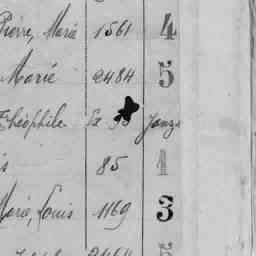 Pierre, Marie 1561 4
Marie 2484 5
Théophile Le
85 1
Marie, Louis 1169 3
5